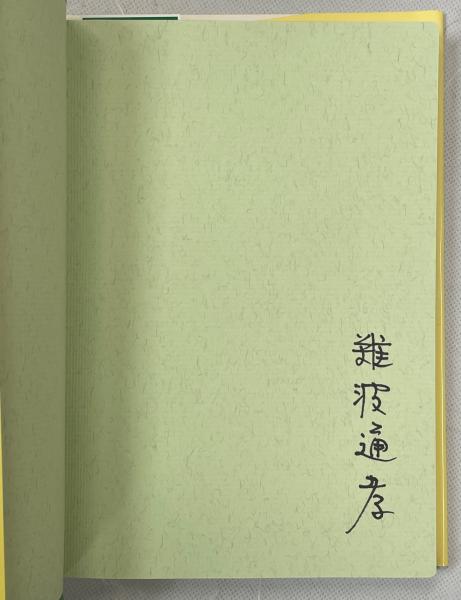 難波通孝